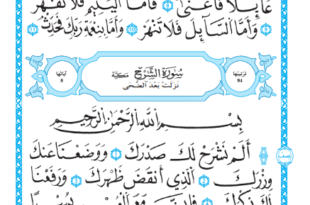 عَآئِلًا فَأَغْنَىٰ فَأَمَّا ٱلْيَتِيمَ فَلَا تَقْهَرْ
وَأَمَّا ٱلسَّآئِلَ فَلَا تَنْهَرْ وَأَمَّا بِنِعْمَةِ رَبِّكَ فَحَدِّثْ
سُورَةُ الشَّرْحِ مَكِّيَّة
نَزَلَتْ بَعْدَ الضُّحَى
بِسْمِ ٱللَّهِ ٱلرَّحْمَٰنِ ٱلرَّحِيمِ
أَلَمْ نَشْرَحْ لَكَ صَدْرَكَ وَوَضَعْنَا عَنكَ
وِزْرَكَ ٱلَّذِىٓ أَنقَضَ ظَهْرَكَ وَرَفَعْنَا
لَكَ ذِكْرَكَ